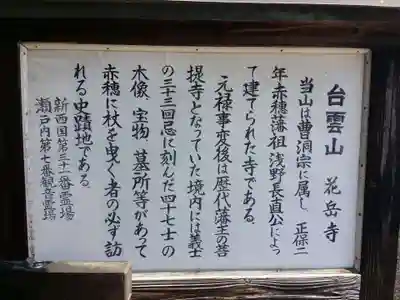 台雲山　花岳寺
当山は曹洞宗に属し　正保二
年赤穂藩祖浅野長直公によっ
て建てられた寺である。
元禄事変後は歴代藩主の菩
提寺となっていた境内には義士
の三十三回忌に刻んだ四十七士の
木像、宝物、墓所等があって
赤穂に杖を曳く者の必ず訪
れる史蹟地である。
新西国第三十一番霊場
瀬戸内第七番観音霊場